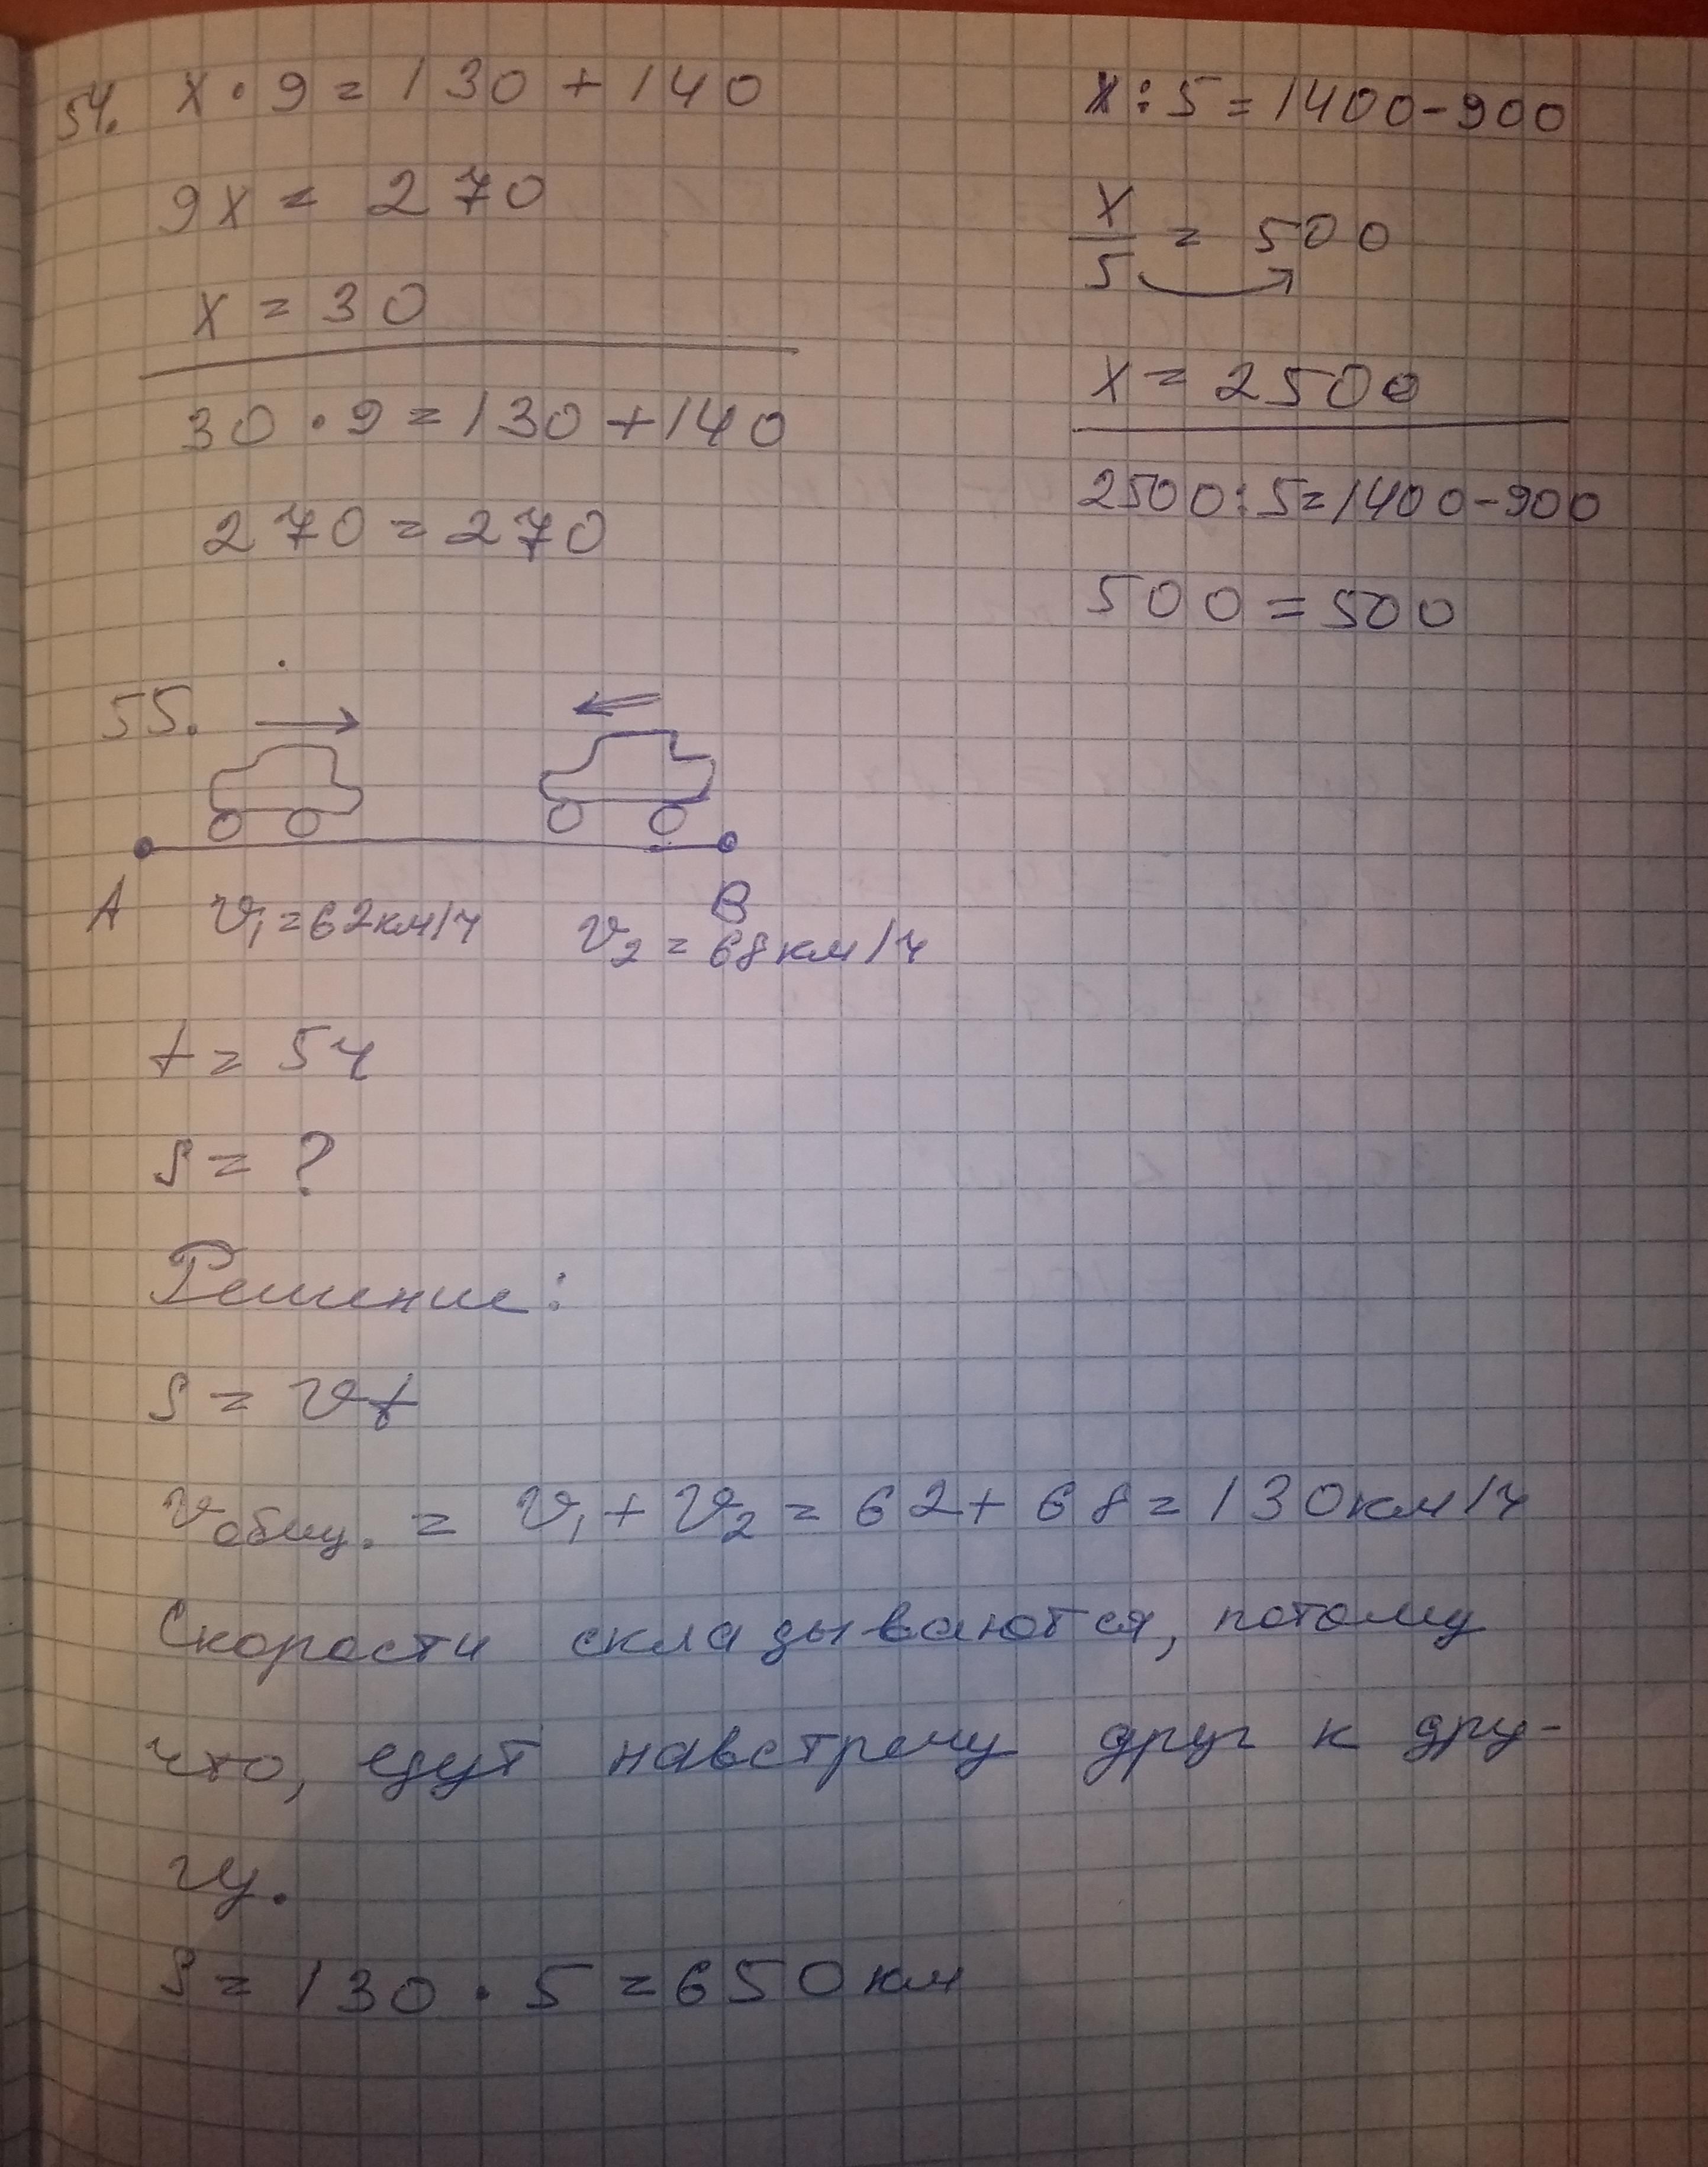 54. x · 9 = 130 + 140
9x = 270
x = 30
30 · 9 = 130 + 140
270 = 270
x : 5 = 1400 - 900
x/5 = 500
x = 2500
2500 : 5 = 1400 - 900
500 = 500
55.
A B
v₁ = 62 км/ч v₂ = 68 км/ч
t = 5ч
s = ?
Решение:
s = vt
vобщ. = v₁ + v₂ = 62 + 68 = 130 км/ч
Скорости складываются, потому
что, едут навстречу друг к дру-
гу.
s = 130 · 5 = 650 км